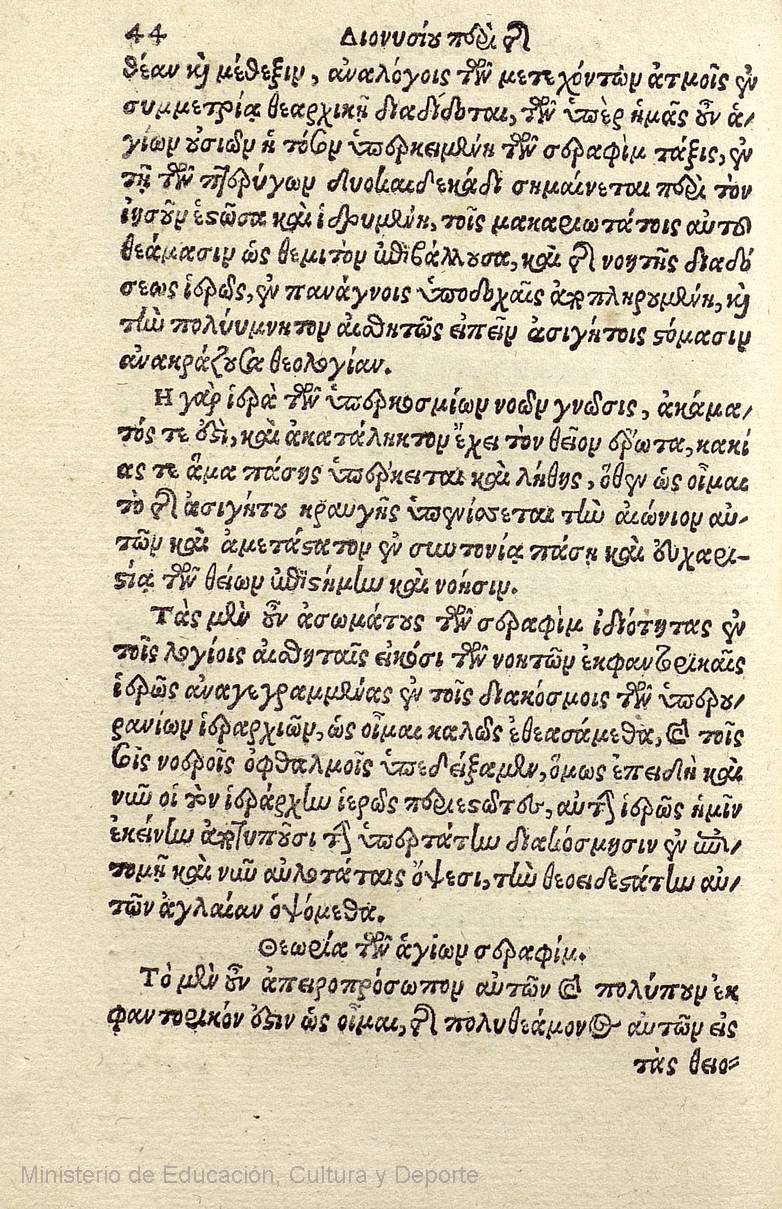 44 Διονυσίου περὶ τῆς
θέαν καὶ μέθεξιν, ἀναλόγοις τῶν μετεχόντων ἀτμοῖς ἐν
συμμετρίᾳ θεαρχικῇ διαδίδοται, τῶν ὑπὲρ ἡμᾶς οὖν ἁ-
γίων οὐσιῶν ἡ τόσον ὑπερκειμένη τῶν σεραφὶμ τάξις, ἐν
τῇ τῶν πτερύγων δυοκαιδεκάδι σημαίνεται περὶ τὸν
ἰησοῦν ἑστῶσα καὶ ἱδρυμένη, τοῖς μακαριωτάτοις αὐτοῦ
θεάμασιν ὡς θεμιτὸν ἐπιβάλλουσα, καὶ τῆς νοητῆς διαδό
σεως ἱερῶς, ἐν πανάγνοις ὑποδοχαῖς ἀποπληρουμένη, καὶ
τὴν πολύυμνητον αἰσθητῶς εἰπεῖν ἀσιγήτοις στόμασιν
ἀνακράζουσα θεολογίαν.
Η γὰρ ἱερὰ τῶν ὑπερκοσμίων νοῶν γνῶσις, ἀκάμα-
τός τε ἐστὶ, καὶ ἀκατάληκτον ἔχει τὸν θεῖον ἔρωτα, κακί
ας τε ἅμα πάσης ὑπέρκειται καὶ λήθης, ὅθεν ὡς οἶμαι
τὸ τῆς ἀσιγήτου κραυγῆς ὑπαινίσσεται τὴν αἰώνιον αὐ-
τῶν καὶ ἀμετάστατον ἐν συντονίᾳ πάσῃ καὶ εὐχαρι-
στίᾳ τῶν θείων ἐπιστήμην καὶ νόησιν.
Τὰς μὲν οὖν ἀσωμάτους τῶν σεραφὶμ ἰδιότητας ἐν
τοῖς λογίοις αἰσθηταῖς εἰκόσι τῶν νοητῶν ἐκφαντορικαῖς
ἱερῶς ἀναγεγραμμένας ἐν τοῖς διακόσμοις τῶν ὑπερου-
ρανίων ἱεραρχιῶν, ὡς οἶμαι καλῶς ἐθεασάμεθα, καὶ τοῖς
σοῖς νοεροῖς ὀφθαλμοῖς ὑπεδείξαμεν, ὅμως ἐπειδὴ καὶ
νῦν οἱ τὸν ἱεράρχην ἱερῶς περιεστῶτες, αὐτὴν ἱερῶς ἡμῖν
ἐκείνην ἀποτυποῦσι τὴν ὑπερτάτην διακόσμησιν ἐν ἐπι-
τομῇ καὶ νῦν αὐλοτάταις ὄψεσι, τὴν θεοειδεστάτην αὐ-
τῶν ἀγλαίαν ὀψόμεθα.
Θεωρία τῶν ἁγίων σεραφίμ.
Τὸ μὲν οὖν ἀπειροπρόσωπον αὐτῶν καὶ πολύπουν ἐκ
φαντορικόν ἐστιν ὡς οἶμαι, τῆς πολυθεάμονος αὐτῶν εἰς
τὰς θειο-
Ministerio de Educación, Cultura y Deporte